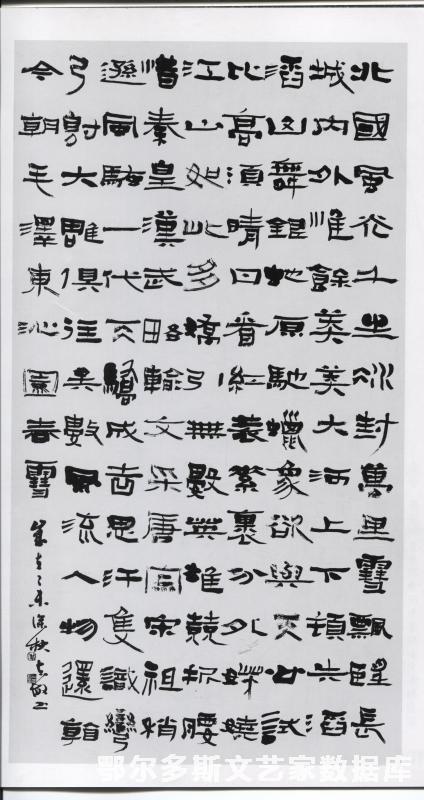 北國風光千里冰封萬里雪飄望長
城内外惟餘莽莽大河上下頓失滔
滔山舞銀蛇原馳蠟象欲與天公試
比高須晴日看紅裝素裹分外妖嬈
江山如此多嬌引無數英雄競折腰
惜秦皇漢武略輸文采唐宗宋祖稍
遜風騷一代天驕成吉思汗隻識彎
弓射大雕俱往矣數風流人物還看
今朝毛澤東沁園春雪
歲在乙未深秋
鄂尔多斯文艺家数据库